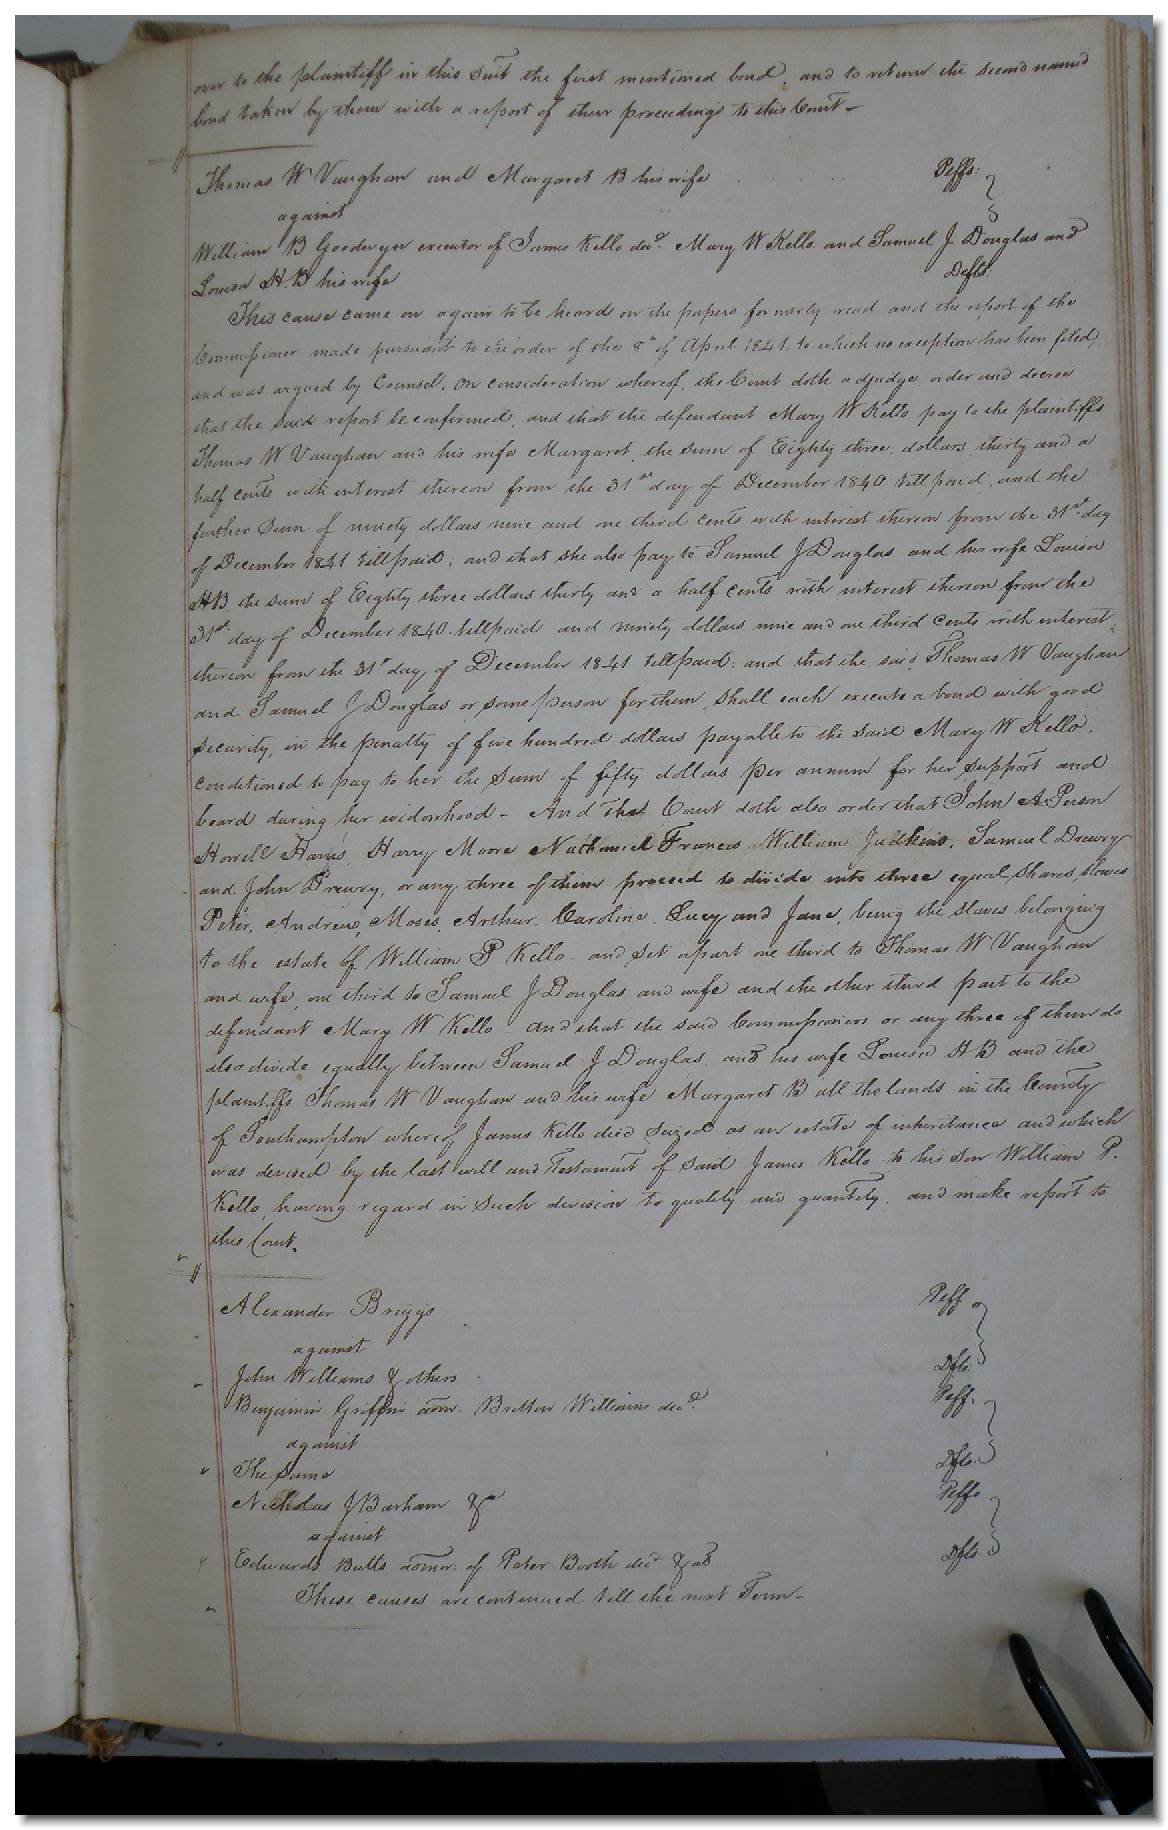 over to the plaintiff in this suit the first mentioned bond, and to return the second named
bond taken by them with a report of their proceedings to this Court –
Thomas W Vaughan and Margaret B his wife Plffs:
against
William B Goodwyn executor of James Kello decd. Mary W Kello and Samuel J Douglas and
Louisa H. B his wife Defts.
This cause came on again to be heard on the papers formerly read and the report of the
Commissioner made pursuant to the order of the 8th of April 1841, to which no exception has been filed,
and was argued by Counsel, on consideration whereof, the Court doth adjudge order and decree
that the said report be confirmed, and that the defendant Mary W Kello pay to the plaintiffs
Thomas W Vaughan and his wife Margaret, the sum of Eighty three dollars thirty and a
half cents with interest thereon from the 31st day of December 1840 till paid, and the
further sum of ninety dollars nine and one third cents with interest thereon from the 31st day
of December 1841 till paid, and that she also pay to Samuel J Douglas and his wife Louisa
H B the sum of Eighty three dollars thirty and a half cents with interest thereon from the
31st day of December 1840 till paid and ninety dollars nine and one third cents with interest
thereon from the 31st day of December 1841 till paid: and that the said Thomas W Vaughan
and Samuel J Douglas or some person for them, shall each execute a bond with good
security, in the penalty of five hundred dollars payable to the said Mary W Kello,
conditioned to pay to her the sum of fifty dollars per annum for her support and
board during her widowhood – And the Court doth also order that John A Person
Howell Harris, Harry Moore Nathaniel Francis William Judkins, Samuel Drewry
and John Drewry, or any three of them proceed to divide into three equal shares, slaves
Peter, Andrew, Moses, Arthur, Caroline, Lucy and Jane, being the slaves belonging
to the estate of William P Kello – and set apart one third to Thomas W Vaughan
and wife, one third to Samuel J Douglas and wife and the other third part to the
defendant Mary W Kello – and that the said Commissioners or any three of them do
also divide equally between Samuel J Douglas, and his wife Louisa H B and the
plaintiffs Thomas W Vaughan and his wife Margaret B all the lands in the County
of Southampton whereof James Kello died seized as an estate of inheritance and which
was devised by the last will and Testament of said James Kello to his son William P.
Kello, having regard in such division to quality and quantity, and make report to
this Court.
Alexander Briggs Plff
against
John Williams & others Dfts.
Benjamin Griffin admr. Britton Williams decd. Plff.
against
The same Dfts.
Nicholas J Barham &c Plffs
against
Edwards Butts admor. of Peter Booth decd & als Dfts.
These causes are continued till the next Term –